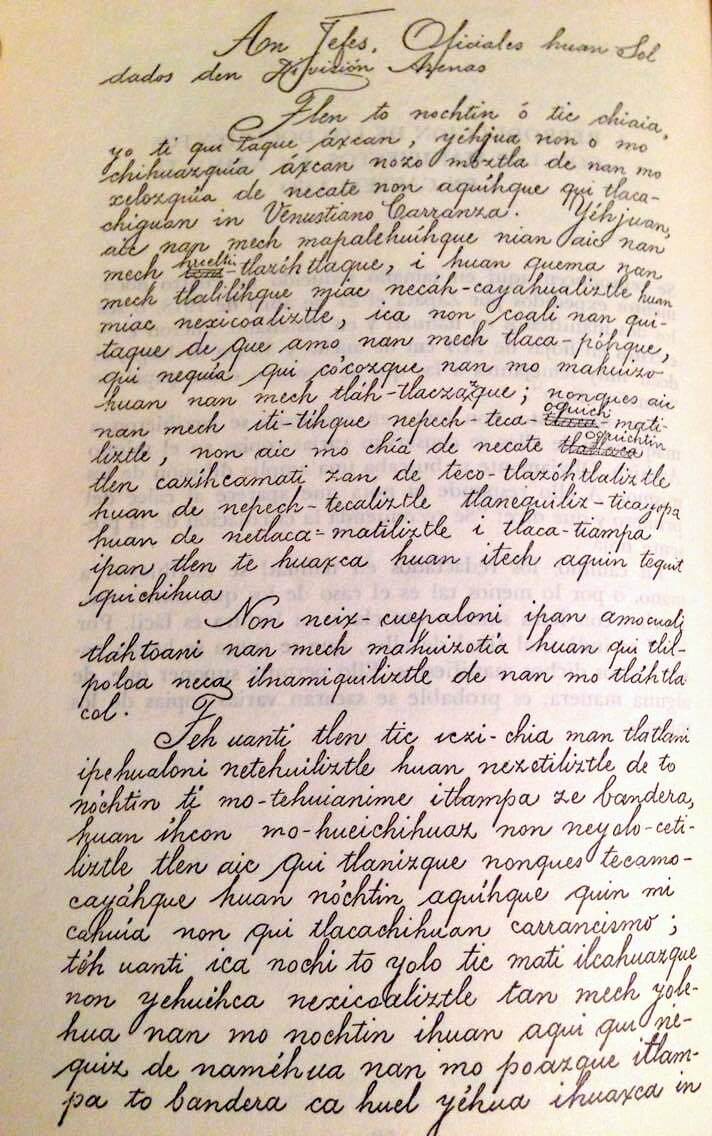 An Jefes, Oficiales huan Sol
dados den División Arenas
Tlen to nochtin ó tic chiaia,
yo ti qui taque áxcan, yéhjua non o mo
chihuazquía áxcan nozo moztla de nan mo
xelozquía de necate non aquíhque qui tlaca-
chiguan in Venustiano Carranza. Yéhjuan,
aic nan mech mapalehuihque nian aic nan
mech huelli tlazíhtlaque, i huan quema nan
mech tlalilíhque miac necáh-cayahualiztle huan
miac nexicoaliztle, ica non coali nan qui-
taque de que amo nan mech tlaca-póhque,
qui nequía qui có'cozque nan mo mahuizo
-huan nan mech tláh-tlaczazque; nonques aic
nan mech iti-tíhque nepech-teca-oquich-mati-
liztle, non aic mo chía de necate oquichtin
tlen cazíhcamati zan de teco-tlazóhtlaliztle
huan de nepech-tecaliztle tlanequiliz-ticayopa
huan de netlaca-matiliztle i tlaca-tiampa
ipan tlen te huaxca huan itech aquin tequit
quichihua
Non neix-cuepaloni ipan amocuali
tláhtoani nan mech mahuizotía huan qui tlil-
poloa neca ilnamiquiliztle de nan mo tláhtla
col.
Teh uanti tlen tic iczi-chia man tlatlani
ipehualoni netehuiliztle huan nezetiliztle de to
nóchtin ti mo-tehuianime itlampa ze bandera,
huan íhcon mo-hueichihuaz non neyolo-ceti-
liztle tlen aic qui tlanizque nonques tecamo-
cayáhque huan nóchtin aquíhque quin mi
cahuía non qui tlacachihuan carrancismo;
téh uanti ica nochi to yolo tic mati ilcahuazque
non yehuéhca nexicoaliztle tan mech yole-
hua nan mo nochtin ihuan aqui qui ne-
quiz de naméhua nan mo poazque itlam-
pa to bandera ca huel yéhua ihuaxca in